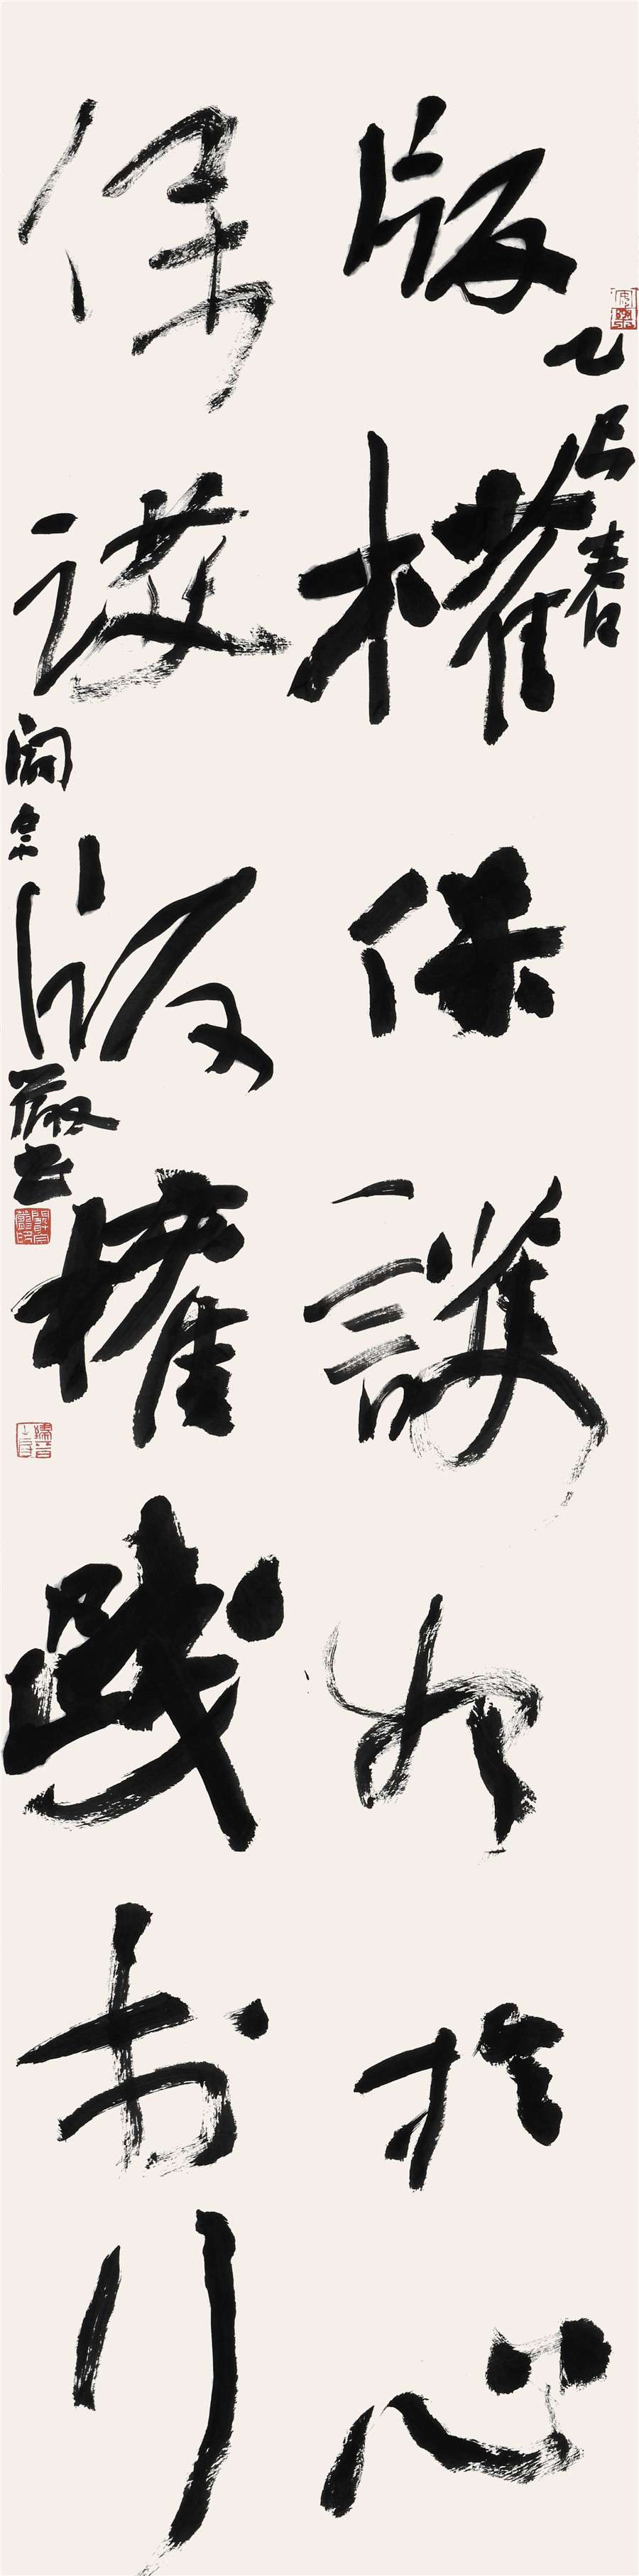 版權保護於心
乙巳春
保護版權踐於行
書